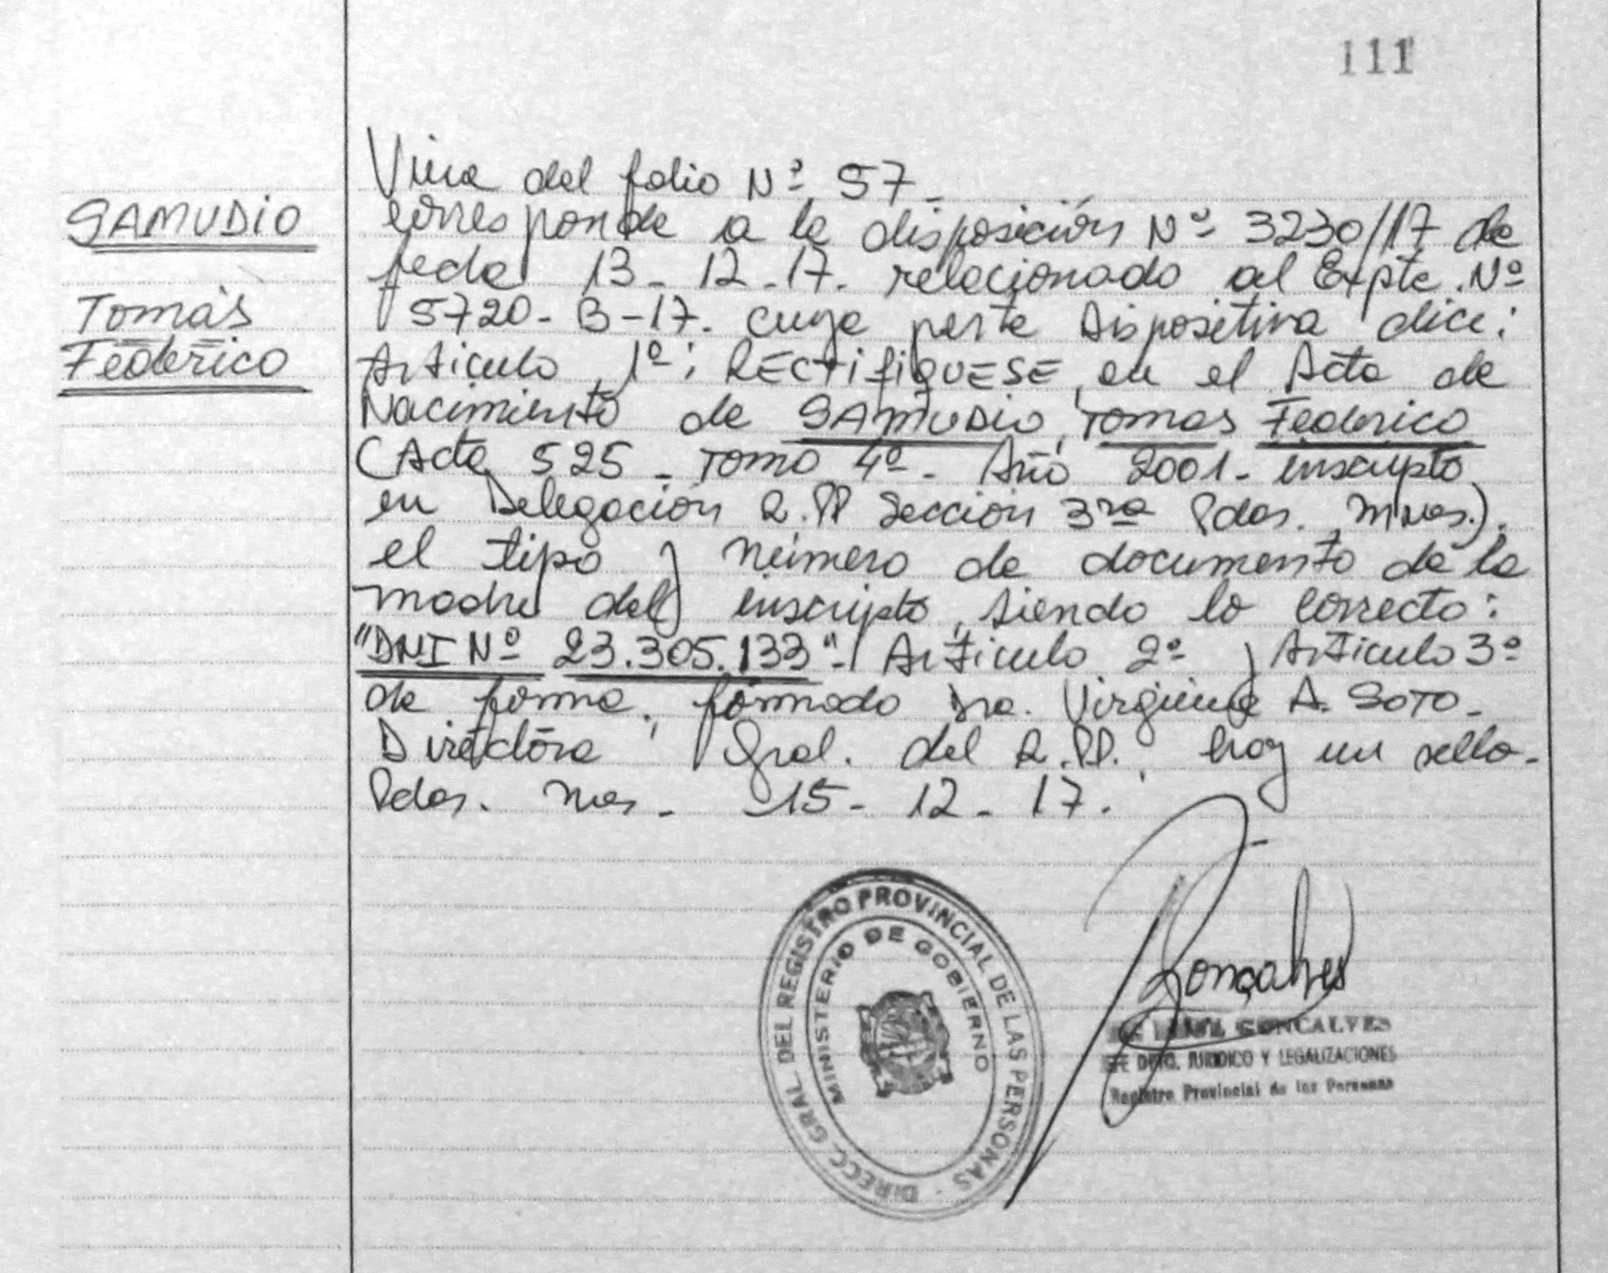 111
SAMUDIO
Tomás
Federico
Viene del folio Nº 57_
corresponde a la disposición Nº 3230/17 de
fecha 13-12-17. relacionado al Expte. Nº
5720-B-17. cuya parte dispositiva dice:
Artículo 1º: RECTIFIQUESE, en el Acta de
Nacimiento de SAMUDIO, Tomas Federico
(Acta 525 - Tomo 4º - Año 2001 - inscripto
en Delegación R.PP Sección 3ra Pdas. Mnes.).
el tipo y número de documento de la
madre del inscripto, siendo lo correcto:
"DNI Nº 23.305.133"- Artículo 2º y Artículo 3º
de forma. firmado Dra. Virginia A. SOTO_
Directora Gral. del R.PP. hay un sello.
Pdas. Mnes. 15-12-17.
DIRECC. GRAL. DEL REGISTRO PROVINCIAL DE LAS PERSONAS
MINISTERIO DE GOBIERNO
Gonçalves
GONCALVES
DPTO. JURIDICO Y LEGALIZACIONES
Registro Provincial de las Personas